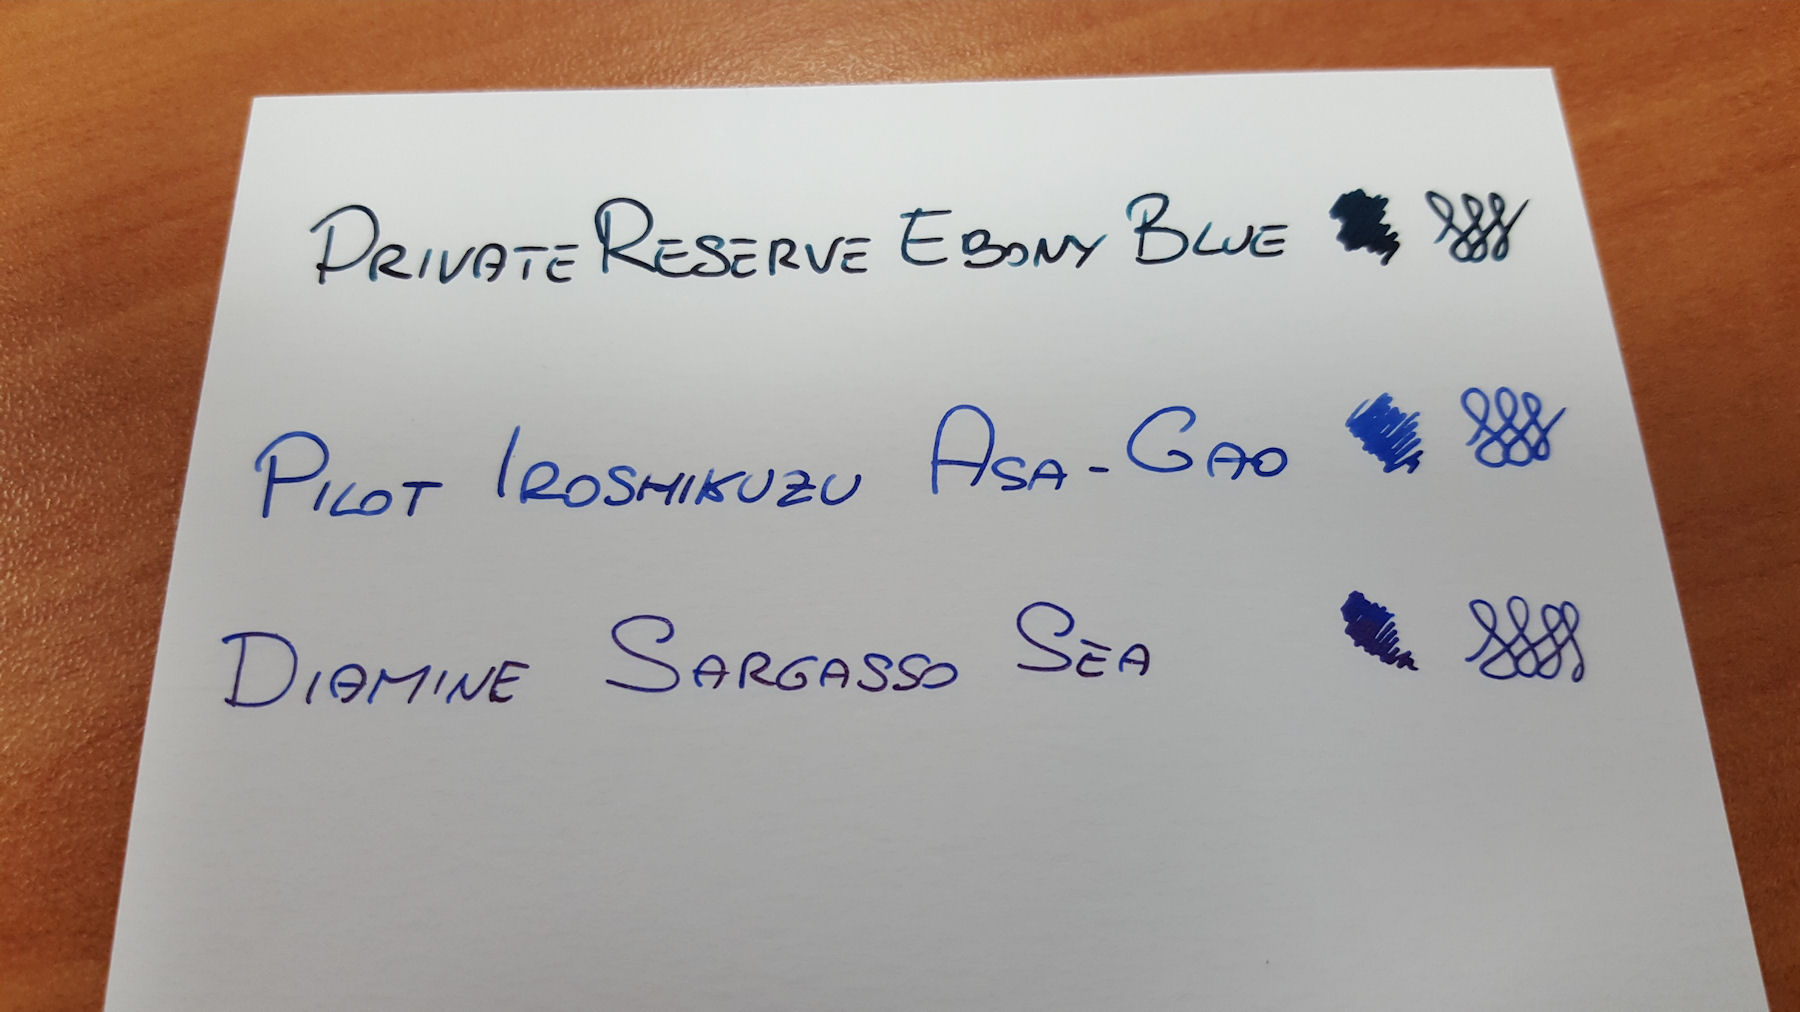 Private Reserve Ebony Blue
Pilot Iroshikuzu Asa-Gao
Diamine Sargasso Sea